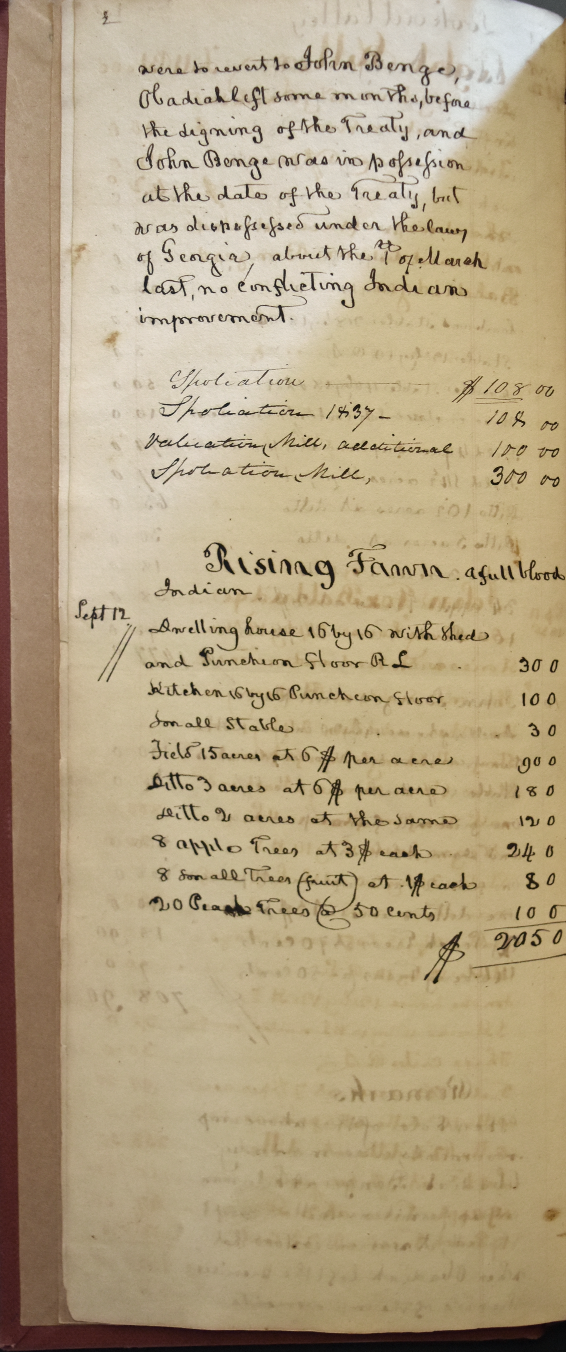 were to revert to John Benge,
Obadiah left some months, before
the signing of the Treaty, and
John Benge was in possession
at the date of the Treaty, but
was dispossessed under the laws
of Georgia about the 1st of March
last, no conflicting Indian
improvement.
Spoliation $108 00
Spoliation 1837 - 108 00
Valuation Mill, additional 100 00
Spoliation Mill, 300 00
Rising Fawn. a full blood
Indian
Sept 12
Dwelling house 16 by 16 with shed
and Puncheon floor R L . 30 0
Kitchen 16 by 16 Puncheon floor 10 0
Small Stable . . 3 0
Field 15 acres at 6$ per acre 90 0
Ditto 3 acres at 6$ per acre 18 0
Ditto 2 acres at the same 12 0
8 apple Trees at 3$ each 24 0
8 small Trees (fruit) at 1$ each 8 0
20 Peach Trees @ 50 cents 10 0
$ 205 0